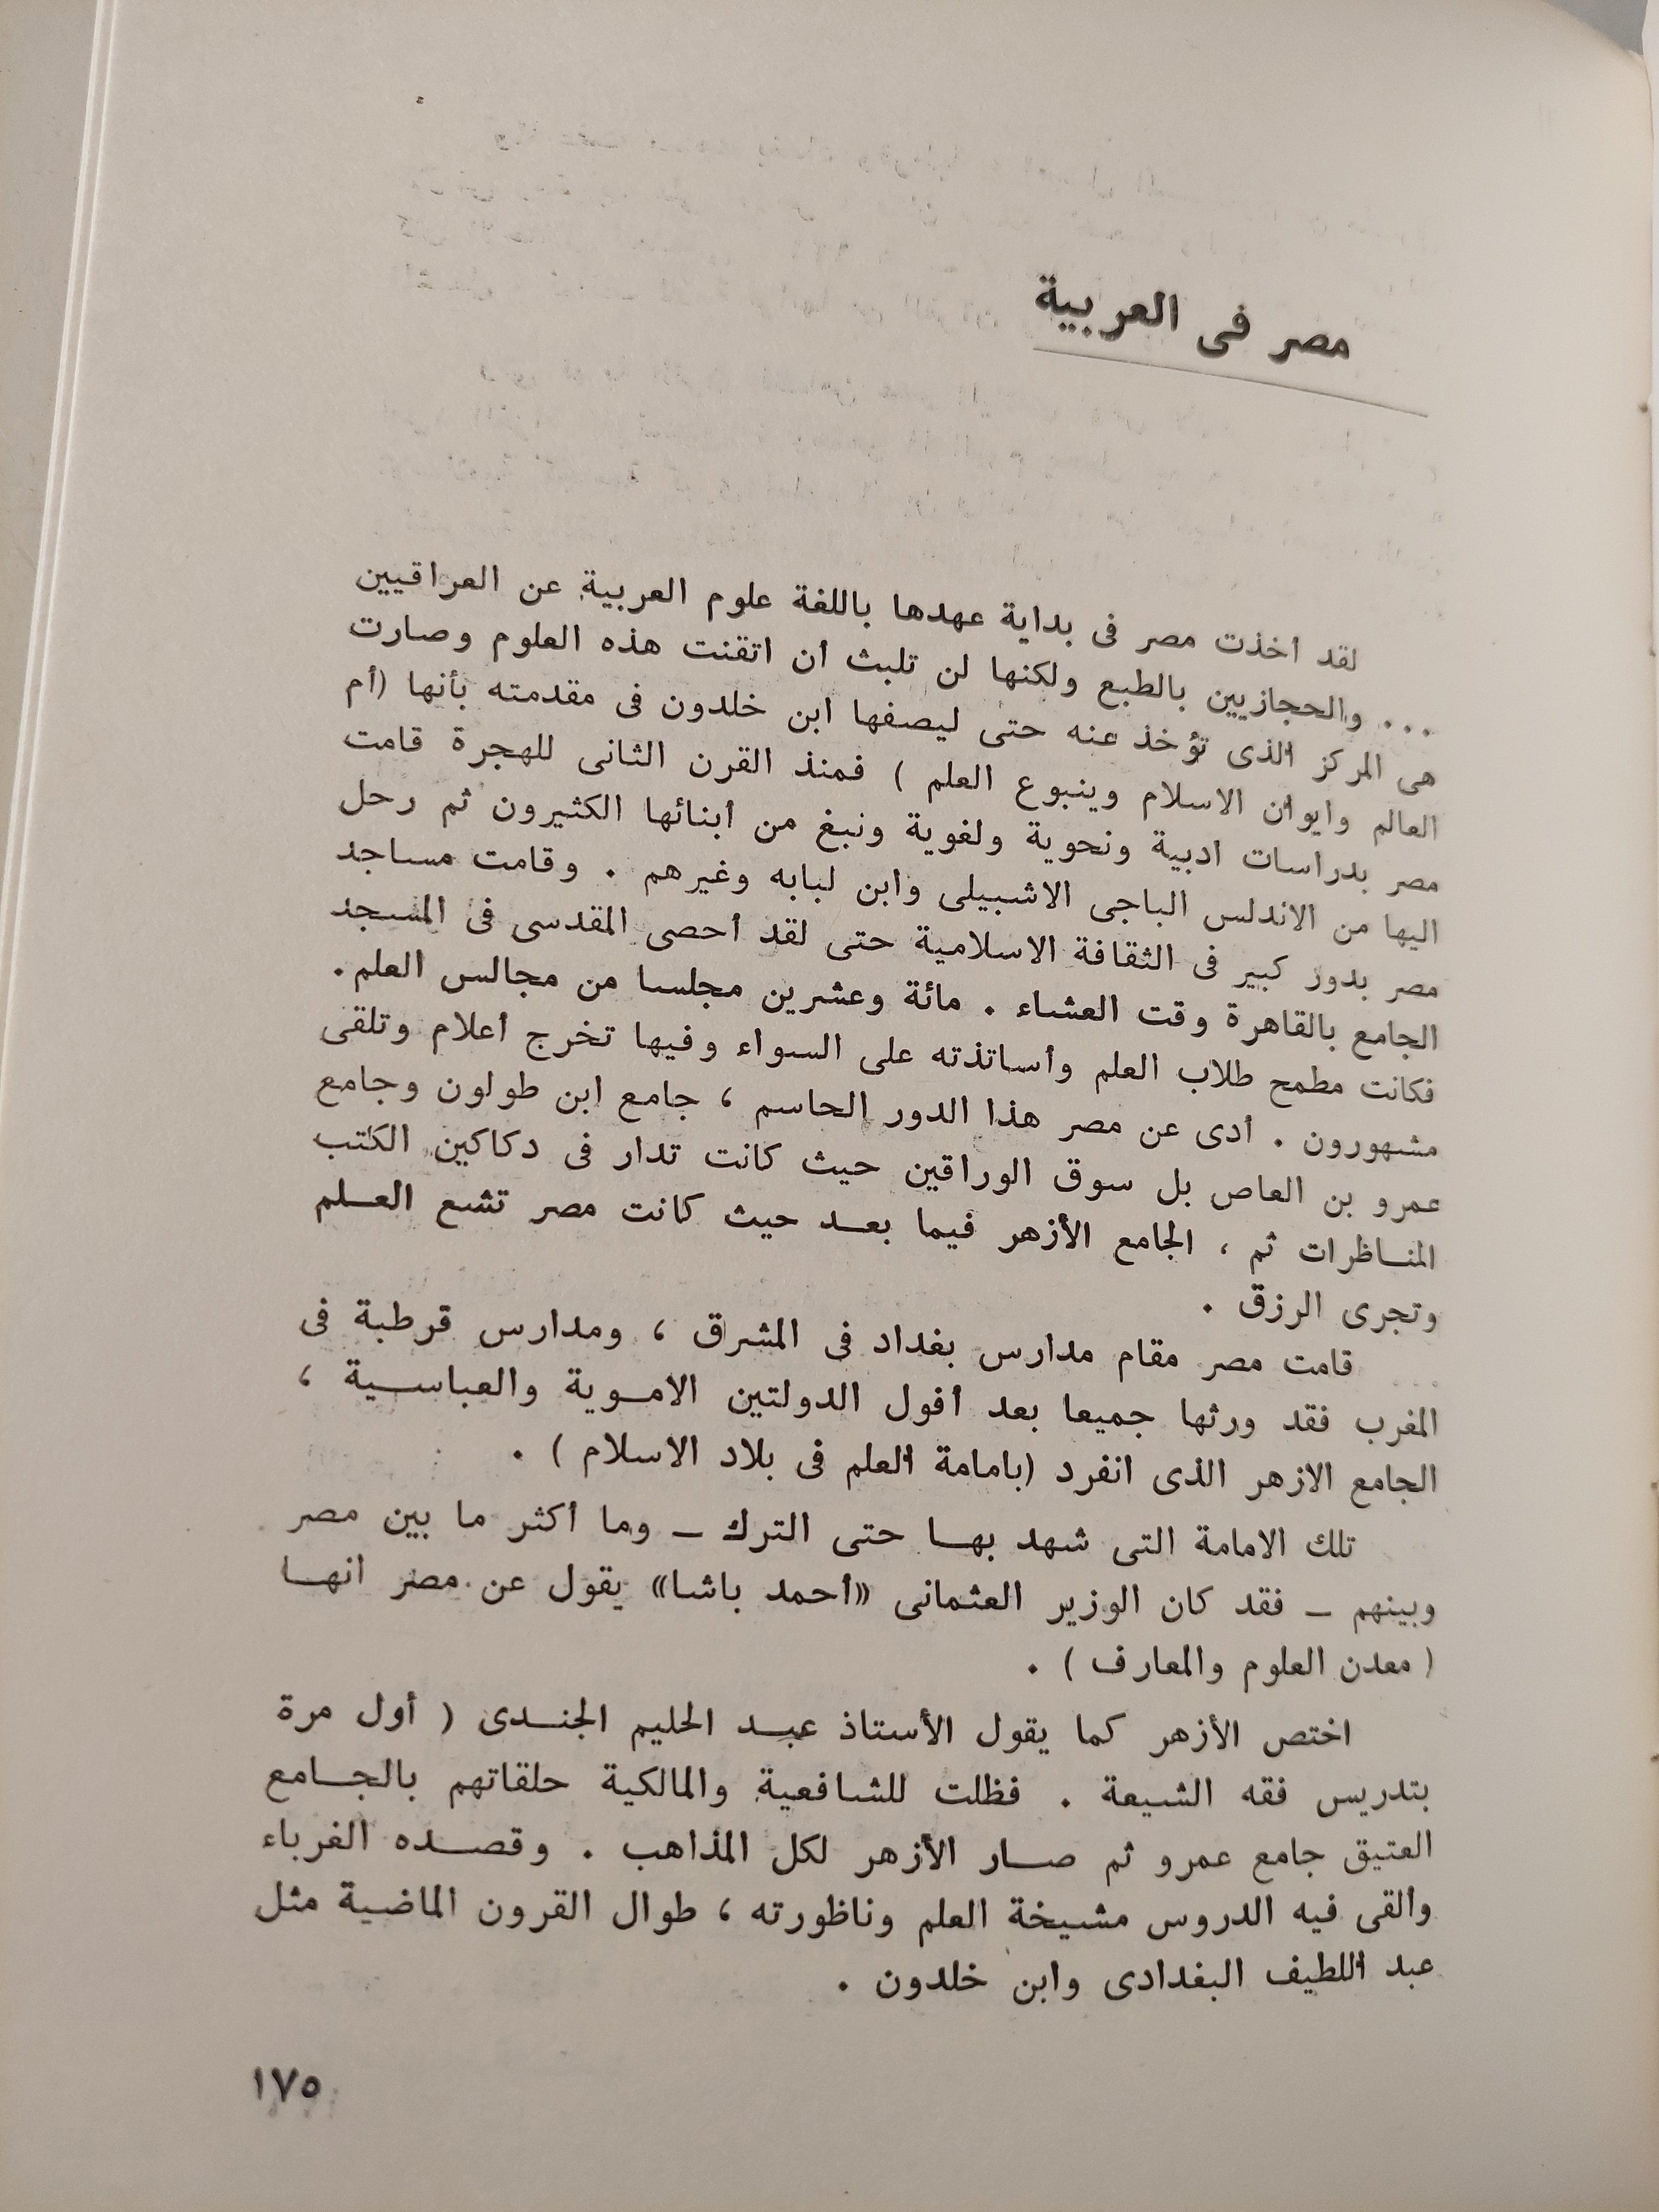 مصر فى العربية
لقد أخذت مصر فى بداية عهدها باللغة علوم العربية عن العراقيين
والحجازيين بالطبع ولكنها لن تلبث أن اتقنت هذه العلوم وصارت
هى المركز الذى تؤخذ عنه حتى ليصفها ابن خلدون فى مقدمته بأنها (أم
العالم وايوان الاسلام وينبوع العلم ) فمنذ القرن الثانى للهجرة قامت
مصر بدراسات ادبية ونحوية ولغوية ونبغ من أبنائها الكثيرون ثم رحل
اليها من الاندلس الباجى الاشبيلى وابن لبابه وغيرهم . وقامت مساجد
مصر بدور كبير فى الثقافة الاسلامية حتى لقد أحصى المقدسى فى المسجد
الجامع بالقاهرة وقت العشاء . مائة وعشرين مجلسا من مجالس العلم .
فكانت مطمح طلاب العلم وأساتذته على السواء وفيها تخرج أعلام وتلقى
مشهورون . أدى عن مصر هذا الدور الحاسم ، جامع ابن طولون وجامع
عمرو بن العاص بل سوق الوراقين حيث كانت تدار فى دكاكين الكتب
المناظرات ثم ، الجامع الأزهر فيما بعد حيث كانت مصر تشع العلم
وتجرى الرزق .
قامت مصر مقام مدارس بغداد فى المشرق ، ومدارس قرطبة فى
المغرب فقد ورثها جميعا بعد أفول الدولتين الاموية والعباسية ،
الجامع الازهر الذى انفرد (بامامة العلم فى بلاد الاسلام ) .
تلك الامامة التى شهد بها حتى الترك – وما أكثر ما بين مصر
وبينهم – فقد كان الوزير العثمانى «أحمد باشا» يقول عن مصر انها
( معدن العلوم والمعارف ) .
اختص الأزهر كما يقول الأستاذ عبد الحليم الجندى ( أول مرة
بتدريس فقه الشيعة . فظلت للشافعية والمالكية حلقاتهم بالجامع
العتيق جامع عمرو ثم صار الأزهر لكل المذاهب . وقصده الغرباء
وألقى فيه الدروس مشيخة العلم وناظورته ، طوال القرون الماضية مثل
عبد اللطيف البغدادى وابن خلدون .
١٧٥